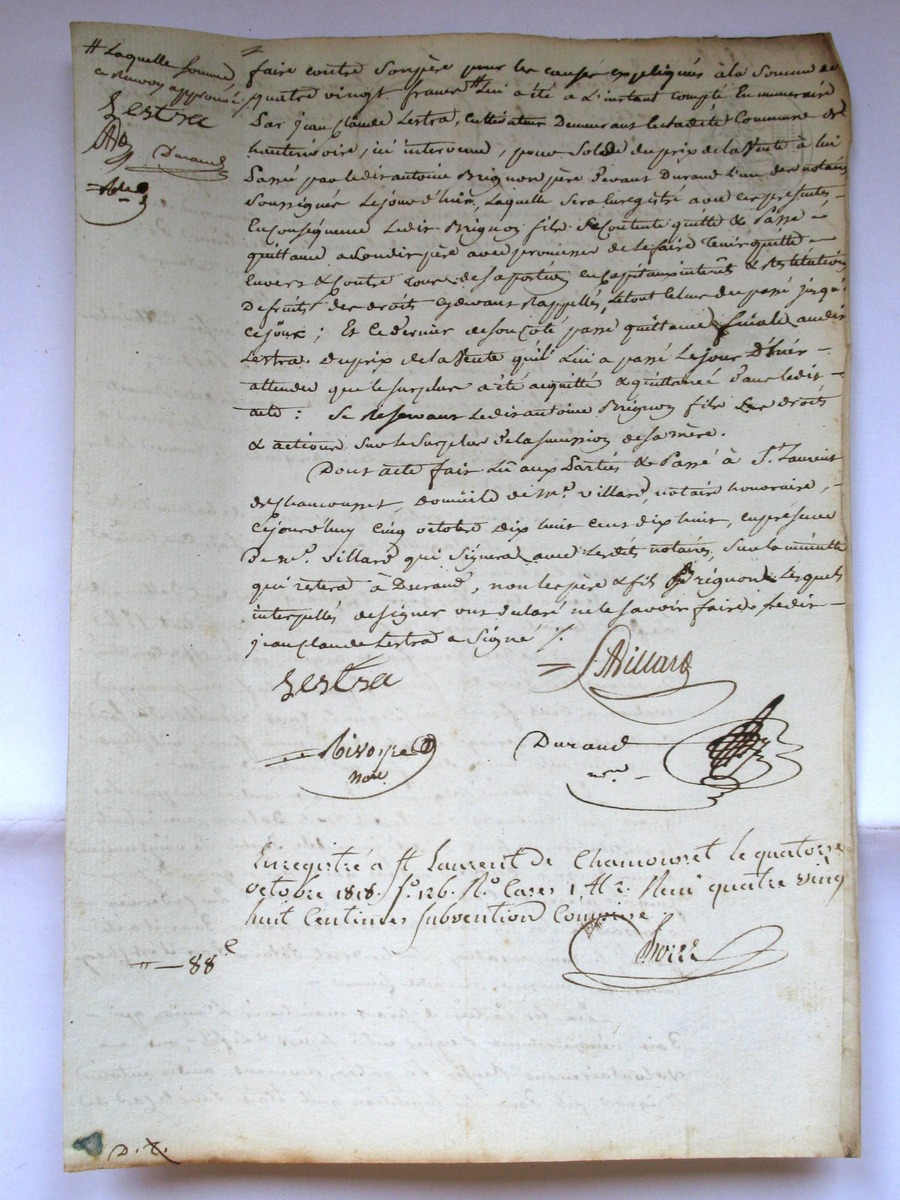 # Laquelle somme
ce Renvoy approuvé
Lestra
Durand
faire contre son père pour les causes expliquées à la somme de
quatre vingt francs # lui a été a L'instant compté En numeraire
Par jean Claude Lestra, cultivateur Demeurant Commune de
hauterivoire, ici intervenu, pour Solde du prix de la Vente à lui
Passé par ledit antoine Brignon père devant Durand L'un des notaires
Soussignés Le jour d'hier, Laquelle Sera Enregistré avec ces presentes,
En consequence Ledit Brignon fils Se Contente quitte & Passe
quittance a Sondit père avec promesse de le faire tenir quitte
Envers & Contre tous de sa portion en Capitaux interets & Restitution
De fruits des droits cydevant Rappellés, le tout du passé jusqu'à
ce jour ; Et ce dernier de son Coté passé quittance finale audit
Lestra. du prix de la Vente qu'il Lui a passé Le jour D'hier
attendu que le surplus a été acquitté & quittancé Dans ledit
acte : Se Reservant Ledit antoine Brignon fils Ses droits
& actions Sur le Surplus de la succession de sa mère.
Dont acte fait Lu aux Parties & Passé à St. Laurent
de Chamousset, domicile de me. Villard, notaire honoraire,
Cejourd'huy Cinq octobre dix huit cent dix huit, en presence
De me. Villard qui Signera avec Lesdits notaires, Sur la minute
qui restera à Durand, non les père & fils Brignon Lesquels
interpellés de signer ont declaré ne le Savoir faire, Ledit
jean Claude Lestra a Signé /.
Lestra
Villard
Durand
nore
Enregistré a St Laurent de Chamousset le quatorze
octobre 1818. fo. 126. Ro. Cases 1 Et 2. Recu quatre vingt
huit Centimes subvention Comprise
88c
D. L.